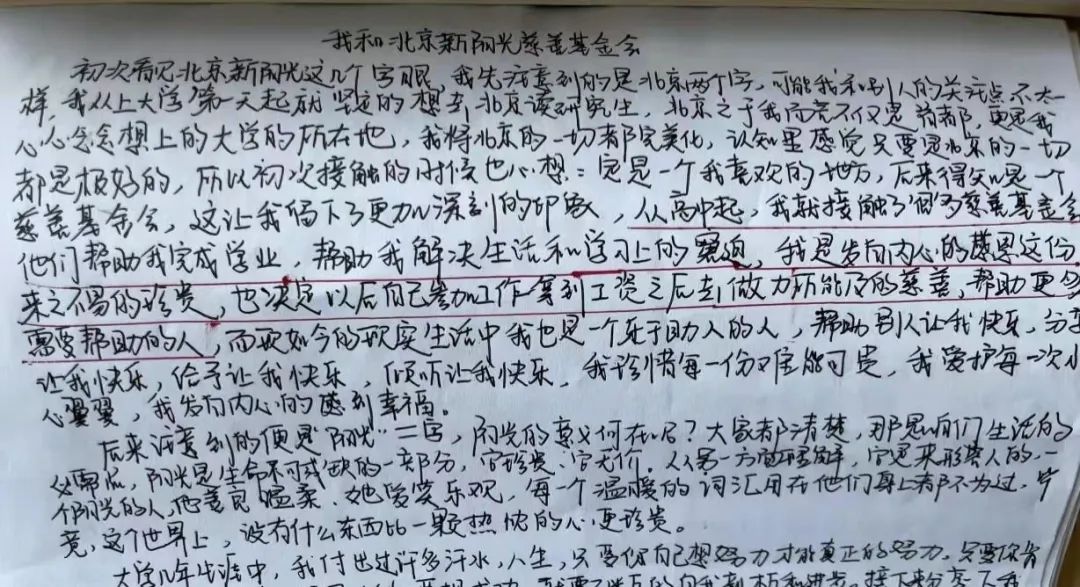 我和北京新阳光慈善基金会
初次看见北京新阳光这几个字眼,我先注意到的是北京两个字,可能我和别人的关注点不太一
样,我从上大学第一天起就坚定的想去北京读研究生,北京之于我而言不仅是首都,更是我
心心念念想上的大学的所在地,我将北京的一切都完美化,认知里感觉只要是北京的一切
都是极好的,所以初次接触的时候也心想:定是一个我喜欢的地方,后来得知是一个
慈善基金会,这让我留下了更加深刻的印象,从高中起,我就接触了很多慈善基金会
他们帮助我完成学业,帮助我解决生活和学习上的窘迫,我是发自内心的感恩这份
来之不易的珍贵,也决定以后自己参加工作拿到工资之后去做力所能及的慈善,帮助更多
需要帮助的人,而如今的现实生活中我也是一个乐于助人的人,帮助别人让我快乐,分享
让我快乐,给予让我快乐,倾听让我快乐,我珍惜每一份难能可贵,我爱护每一次小
心翼翼,我发自内心的感到幸福。
后来注意到的便是"阳光"二字,阳光的意义何在呢?大家都清楚,那是咱们生活的
必需品,阳光是生命不可或缺的一部分,它珍贵、它无价。从另一方面理解,它是来形容人的,一
个阳光的人,他善良温柔、她爱笑乐观,每一个温暖的词汇用在他们身上都不为过,毕
竟,这个世界上,没有什么东西比一颗热忱的心更珍贵。
大学几年生涯中,我付出过许多汗水,人生,只要你自己想努力才能真正的努力,只要你肯